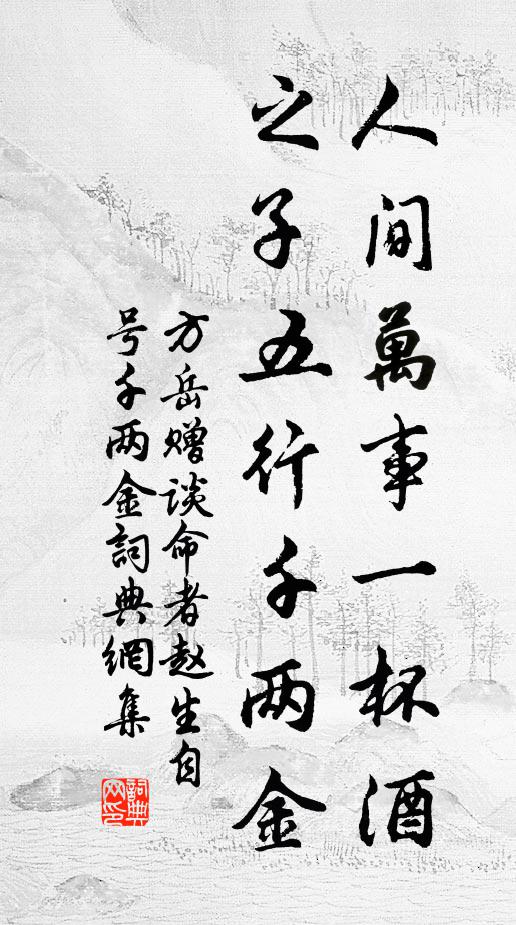 人间萬事一杯酒
之子五行千两金
方岳赠谈命者赵生自
号千两金詞典網集
詞典网印